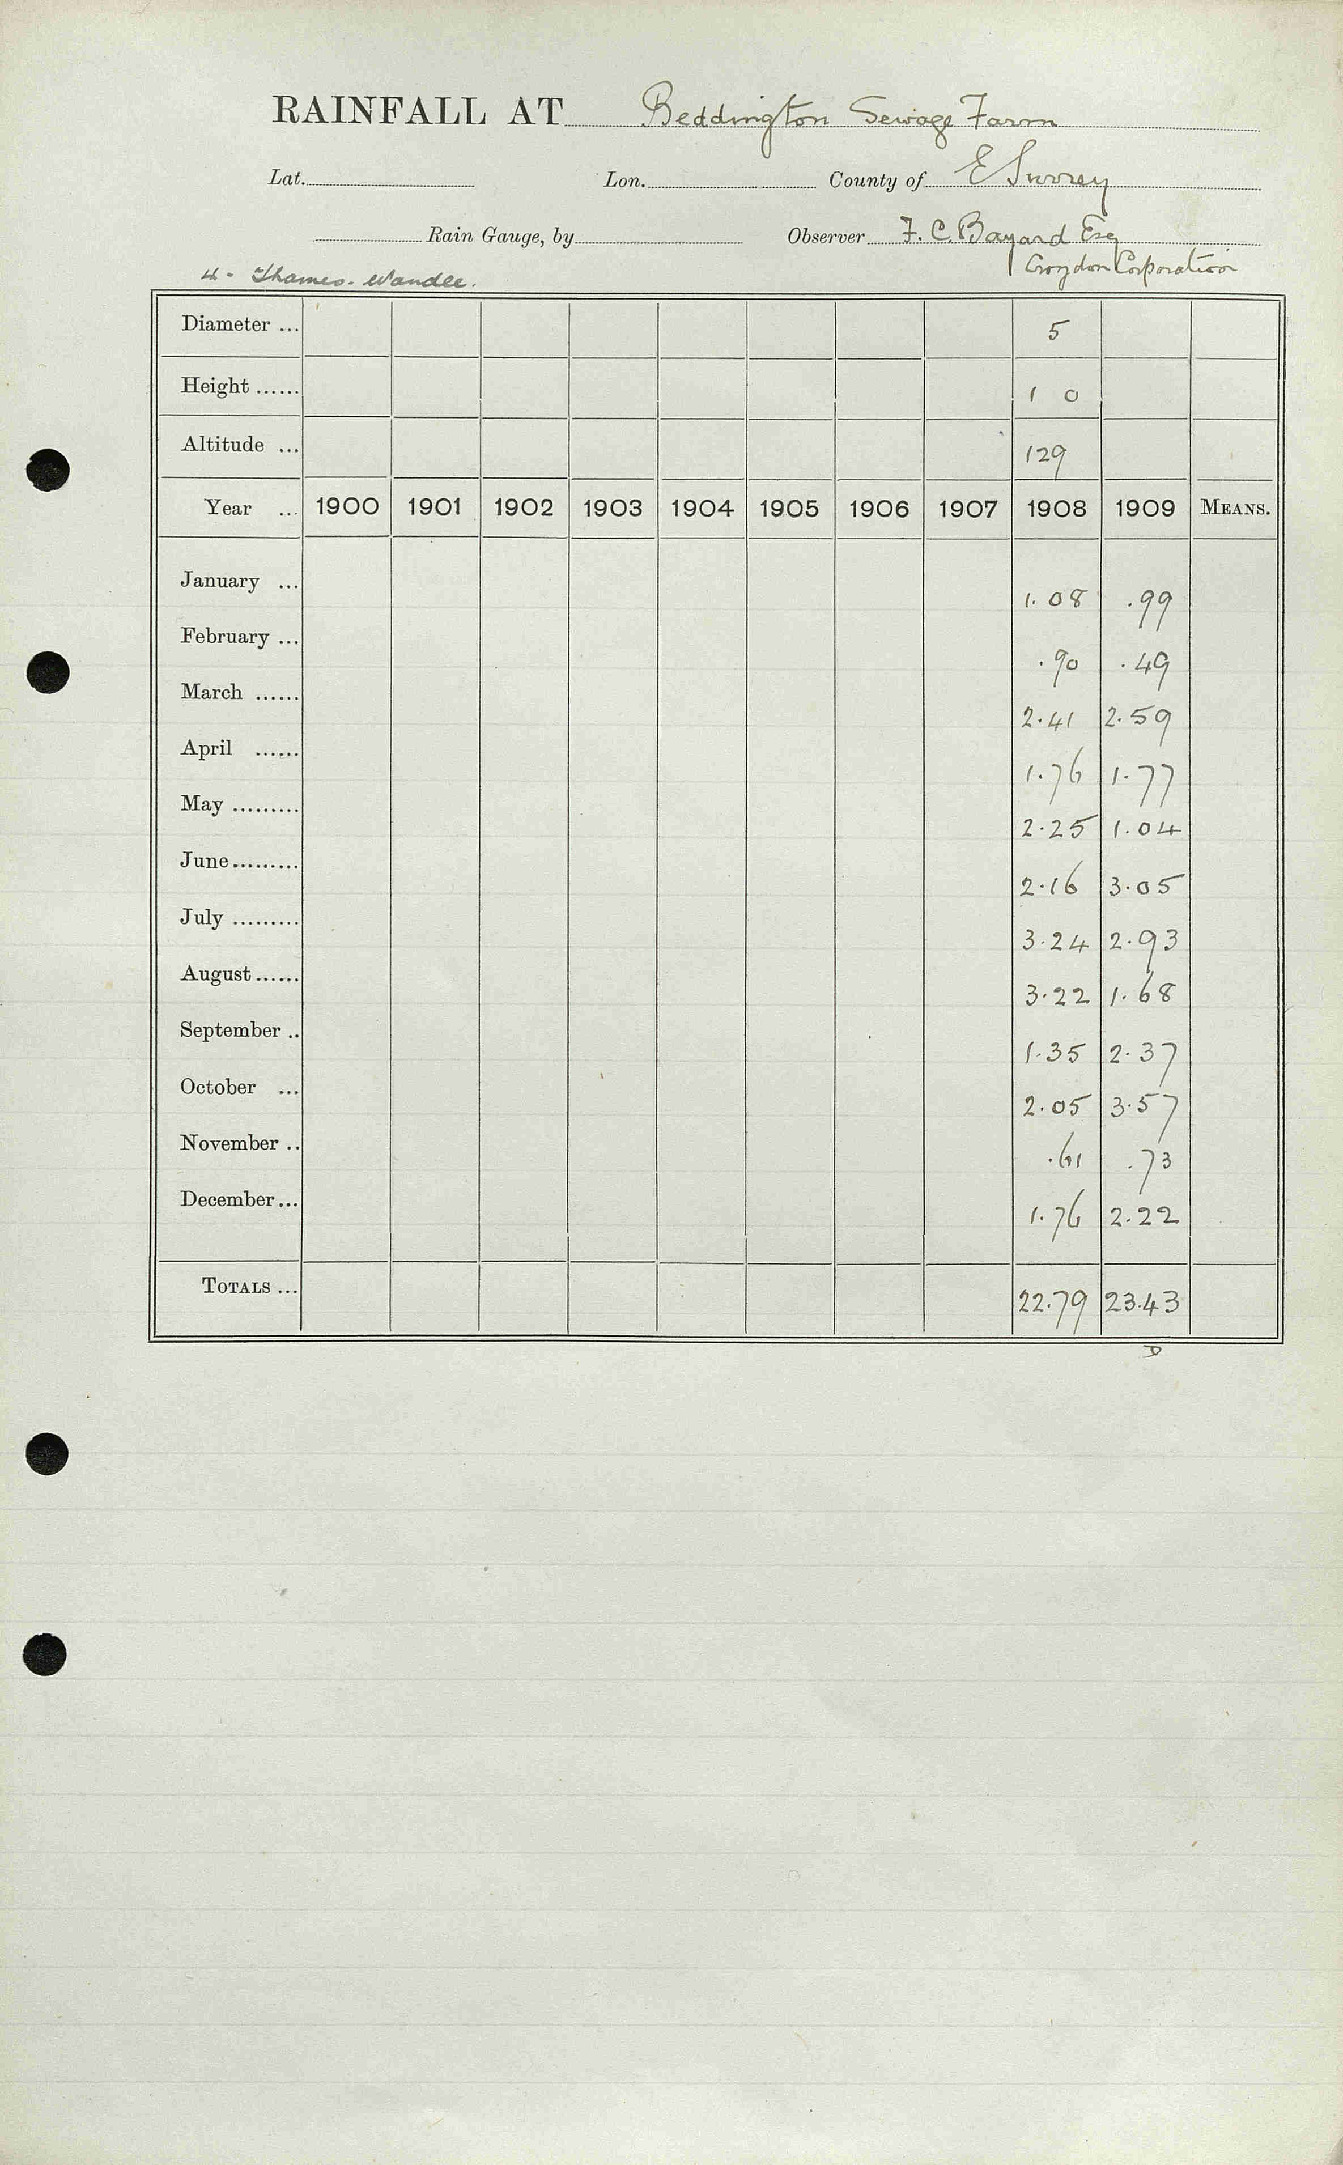 RAINFALL AT Beddington Sewage Farm
Lat. Lon. County of E Surrey
Rain Gauge, by Observer F. C. Bayard Esq
4. Thames. Wandle. Croydon Corporation
Diameter ... 5
Height ...... 1 0
Altitude ... 129
Year ... 1900 1901 1902 1903 1904 1905 1906 1907 1908 1909 MEANS.
January ... 1.08 .99
February ... .90 .49
March ...... 2.41 2.59
April ...... 1.76 1.77
May ......... 2.25 1.04
June......... 2.16 3.05
July ......... 3.24 2.93
August...... 3.22 1.68
September .. 1.35 2.37
October ... 2.05 3.57
November .. .61 .73
December... 1.76 2.22
TOTALS ... 22.79 23.43